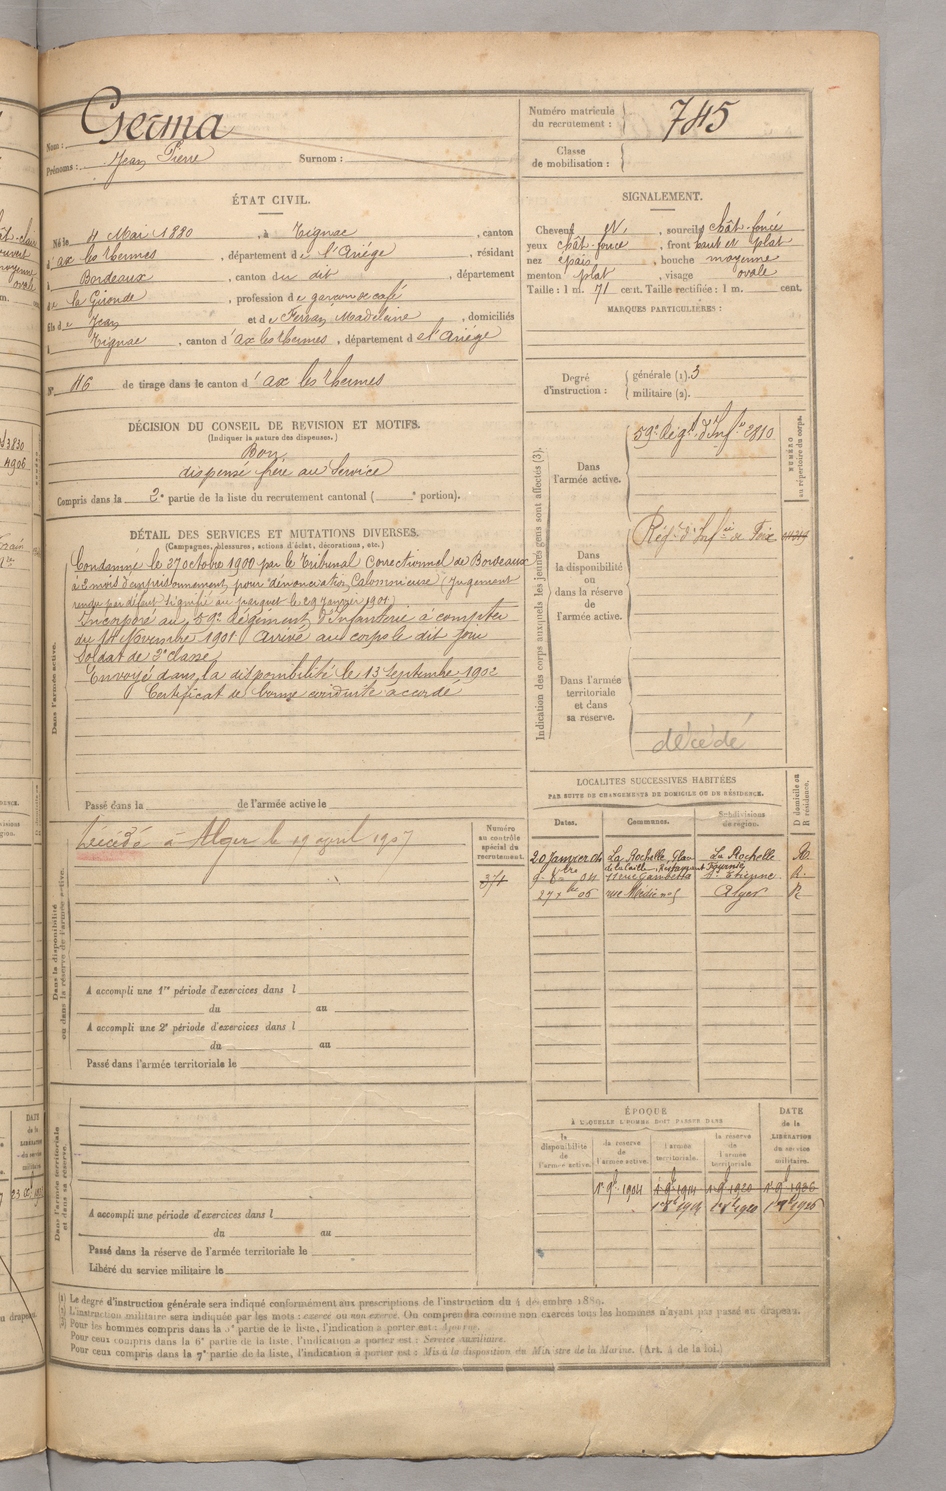 Nom : Germa
Prénoms : Jean Pierre Surnom :
Numéro matricule du recrutement : 745
Classe de mobilisation :
ÉTAT CIVIL.
Né le 4 Mai 1880, à Tignac, canton
d'ax les thermes, département de l'Ariège, résidant
à Bordeaux, canton du dit, département
de la Gironde, profession de garçon de café
fils de Jean et de Ferran Madeleine, domiciliés
à Tignac, canton d'Ax les thermes, département de l'Ariège
N° 46 de tirage dans le canton d'ax les thermes
SIGNALEMENT.
Cheveux N., sourcils chât-foncé
yeux chât-foncé, front haut et plat
nez épais, bouche moyenne
menton plat, visage ovale
Taille : 1 m. 71 cent. Taille rectifiée : 1 m. cent.
MARQUES PARTICULIÈRES :
Degré d'instruction : générale (1). 3
militaire (2).
DÉCISION DU CONSEIL DE REVISION ET MOTIFS.
(Indiquer la nature des dispenses.)
Bon
dispensé frère au Service
Compris dans la 2e partie de la liste du recrutement cantonal ( e portion).
DÉTAIL DES SERVICES ET MUTATIONS DIVERSES.
(Campagnes, blessures, actions d'éclat, décorations, etc.)
Dans l'armée active.
Condamné le 27 octobre 1900 par le Tribunal Correctionnel de Bordeaux
à 2 mois d'emprisonnement pour dénonciation Calomnieuse (Jugement
rendu par défaut signifié au parquet le 29 Janvier 1901)
Incorporé au 59e Régiment d'Infanterie à compter
du 14 Novembre 1901 Arrivé au corps le dit jour
Soldat de 2e classe
Envoyé dans la disponibilité le 13 Septembre 1902
Certificat de bonne conduite accordé
Passé dans la de l'armée active le
Indication des corps auxquels les jeunes gens sont affectés (3).
NUMÉRO au répertoire du corps.
Dans l'armée active.
59e Régt d'Infie 2810
Dans la disponibilité ou dans la réserve de l'armée active.
Régt d'Infie de Foix
Dans l'armée territoriale et dans sa réserve.
décédé
Dans la disponibilité ou dans la réserve de l'armée active.
Décédé à Alger le 19 april 1907
Numéro au contrôle spécial du recrutement.
371
A accompli une 1re période d'exercices dans l
du au
A accompli une 2e période d'exercices dans l
du au
Passé dans l'armée territoriale le
LOCALITÉS SUCCESSIVES HABITÉES
PAR SUITE DE CHANGEMENTS DE DOMICILE OU DE RÉSIDENCE.
Dates. Communes. Subdivisions de région. D domicile ou R résidence.
20 Janvier 04 La Rochelle La Rochelle R.
04 11 rue Gambetta St Etienne R.
27 05 rue Médée n° 5 Alger R
Dans l'armée territoriale et dans sa réserve.
A accompli une période d'exercices dans l
du au
Passé dans la réserve de l'armée territoriale le
Libéré du service militaire le
ÉPOQUE
À LAQUELLE L'HOMME DOIT PASSER DANS
la disponibilité de l'armée active. la réserve de l'armée active. l'armée territoriale. la réserve de l'armée territoriale
DATE de la LIBÉRATION du service militaire.
1 9bre 1904 1 9bre 1914 1 9bre 1920 1 9bre 1926
(1) Le degré d'instruction générale sera indiqué conformément aux prescriptions de l'instruction du 4 décembre 1889.
(2) L'instruction militaire sera indiquée par les mots : exercé ou non exercé. On comprendra comme non exercés tous les hommes n'ayant pas passé au drapeau.
(3) Pour les hommes compris dans la 5e partie de la liste, l'indication à porter est : Ajourné.
Pour ceux compris dans la 6e partie de la liste, l'indication à porter est : Service auxiliaire.
Pour ceux compris dans la 7e partie de la liste, l'indication à porter est : Mis à la disposition du Ministre de la Marine. (Art. 4 de la loi.)